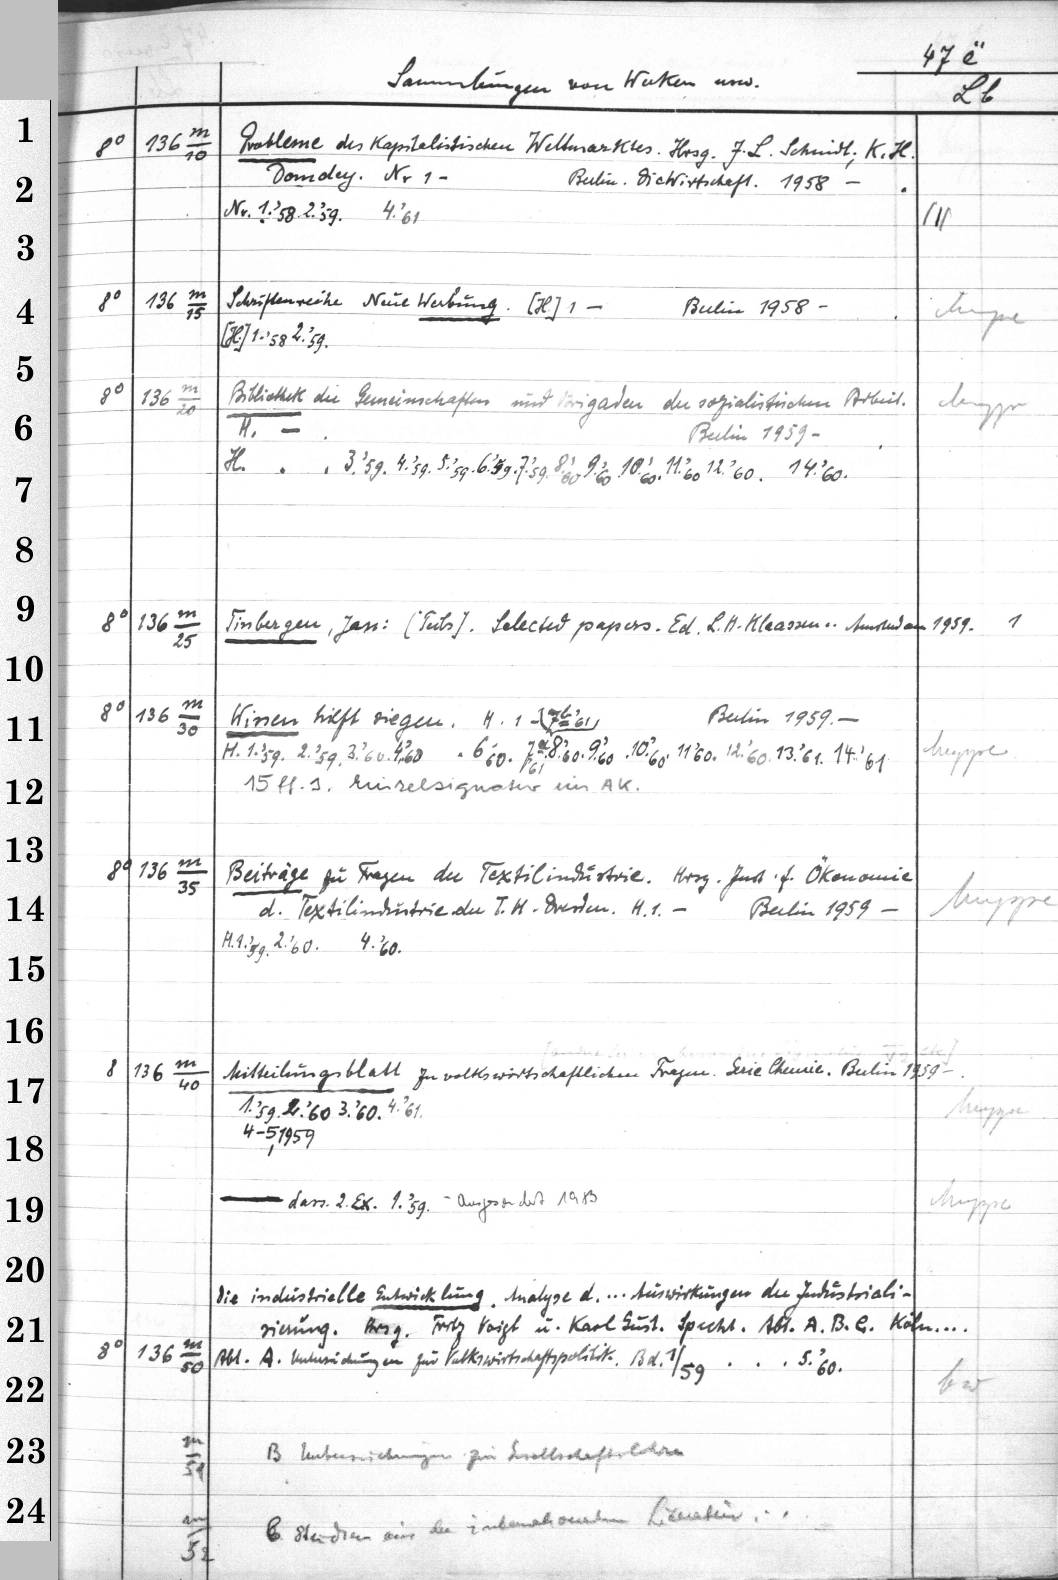 47 ë
Sammlungen von Werken usw.
Lb
1
8° 136 m/10 Probleme des kapitalistischen Weltmarktes. Hrsg. J. L. Schmidt, K. H.
2
Domdey. Nr 1 - Berlin. Die Wirtschaft. 1958 -
Nr. 1.'58. 2.'59. 4.'61
3
4
8° 136 m/15 Schriftenreihe Neue Werbung. [H.] 1 - Berlin 1958 - Mappe
[H.] 1.'58 2.'59.
5
8° 136 m/20 Bibliothek der Gemeinschaften und Brigaden der sozialistischen Arbeit. Mappe
6
H. - . Berlin 1959 -
H. . . 3.'59. 4.'59. 5.'59. 6.'59. 7.'59. 8.'60 9.'60 10.'60. 11.'60 12.'60. 14.'60.
7
8
9
8° 136 m/25 Tinbergen, Jan: [Teils]. Selected papers. Ed. L. H. Klaassen .. Amsterdam 1959. 1
10
8° 136 m/30 Wissen hilft siegen. H. 1 - Berlin 1959. -
11
H. 1.'59. 2.'59. 3.'60. 4.'60 . 6.'60. 8.'60. 9.'60 10.'60. 11.'60. 12.'60. 13.'61. 14.'61 Mappe
12
15 ff. s. Einzelsignatur im AK.
13
8° 136 m/35 Beiträge zu Fragen der Textilindustrie. Hrsg. Inst. f. Ökonomie
14
d. Textilindustrie der T. H. Dresden. H. 1. - Berlin 1959 - Mappe
H. 1.'59. 2.'60. 4.'60.
15
16
8 136 m/40 Mitteilungsblatt zu volkswirtschaftlichen Fragen. Serie Chemie. Berlin 1959 - .
17
1.'59. 2.'60 3.'60. 4.'61. Mappe
4-5, 1959
18
19
dass. 2. Ex. 1.'59. - ausgesondert 1983 Mappe
20
Die industrielle Entwicklung. Analyse d. ... Auswirkungen der Industriali-
21
sierung. Hrsg. Fritz Voigt u. Karl Gust. Specht. Abt. A. B. C. Köln....
8° 136 m/50 Abt. A. Untersuchungen zur Volkswirtschaftspolitik. Bd. 1/59 . . . 5.'60.
22
bw
23
m/51 B Untersuchungen zur Gesellschaftslehre
24
m/52 C Studien aus der internationalen Literatur . . .